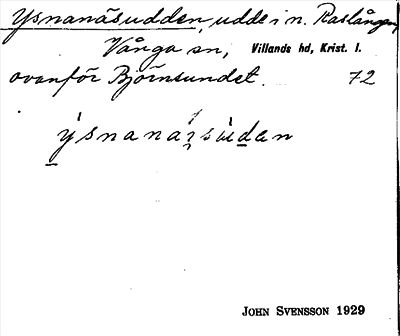 Ysnanäsudden, udde i n. Raslången,
Vånga sn, Villands hd, Krist. l.
ovanför Björnsundet. 72
John Svensson 1929